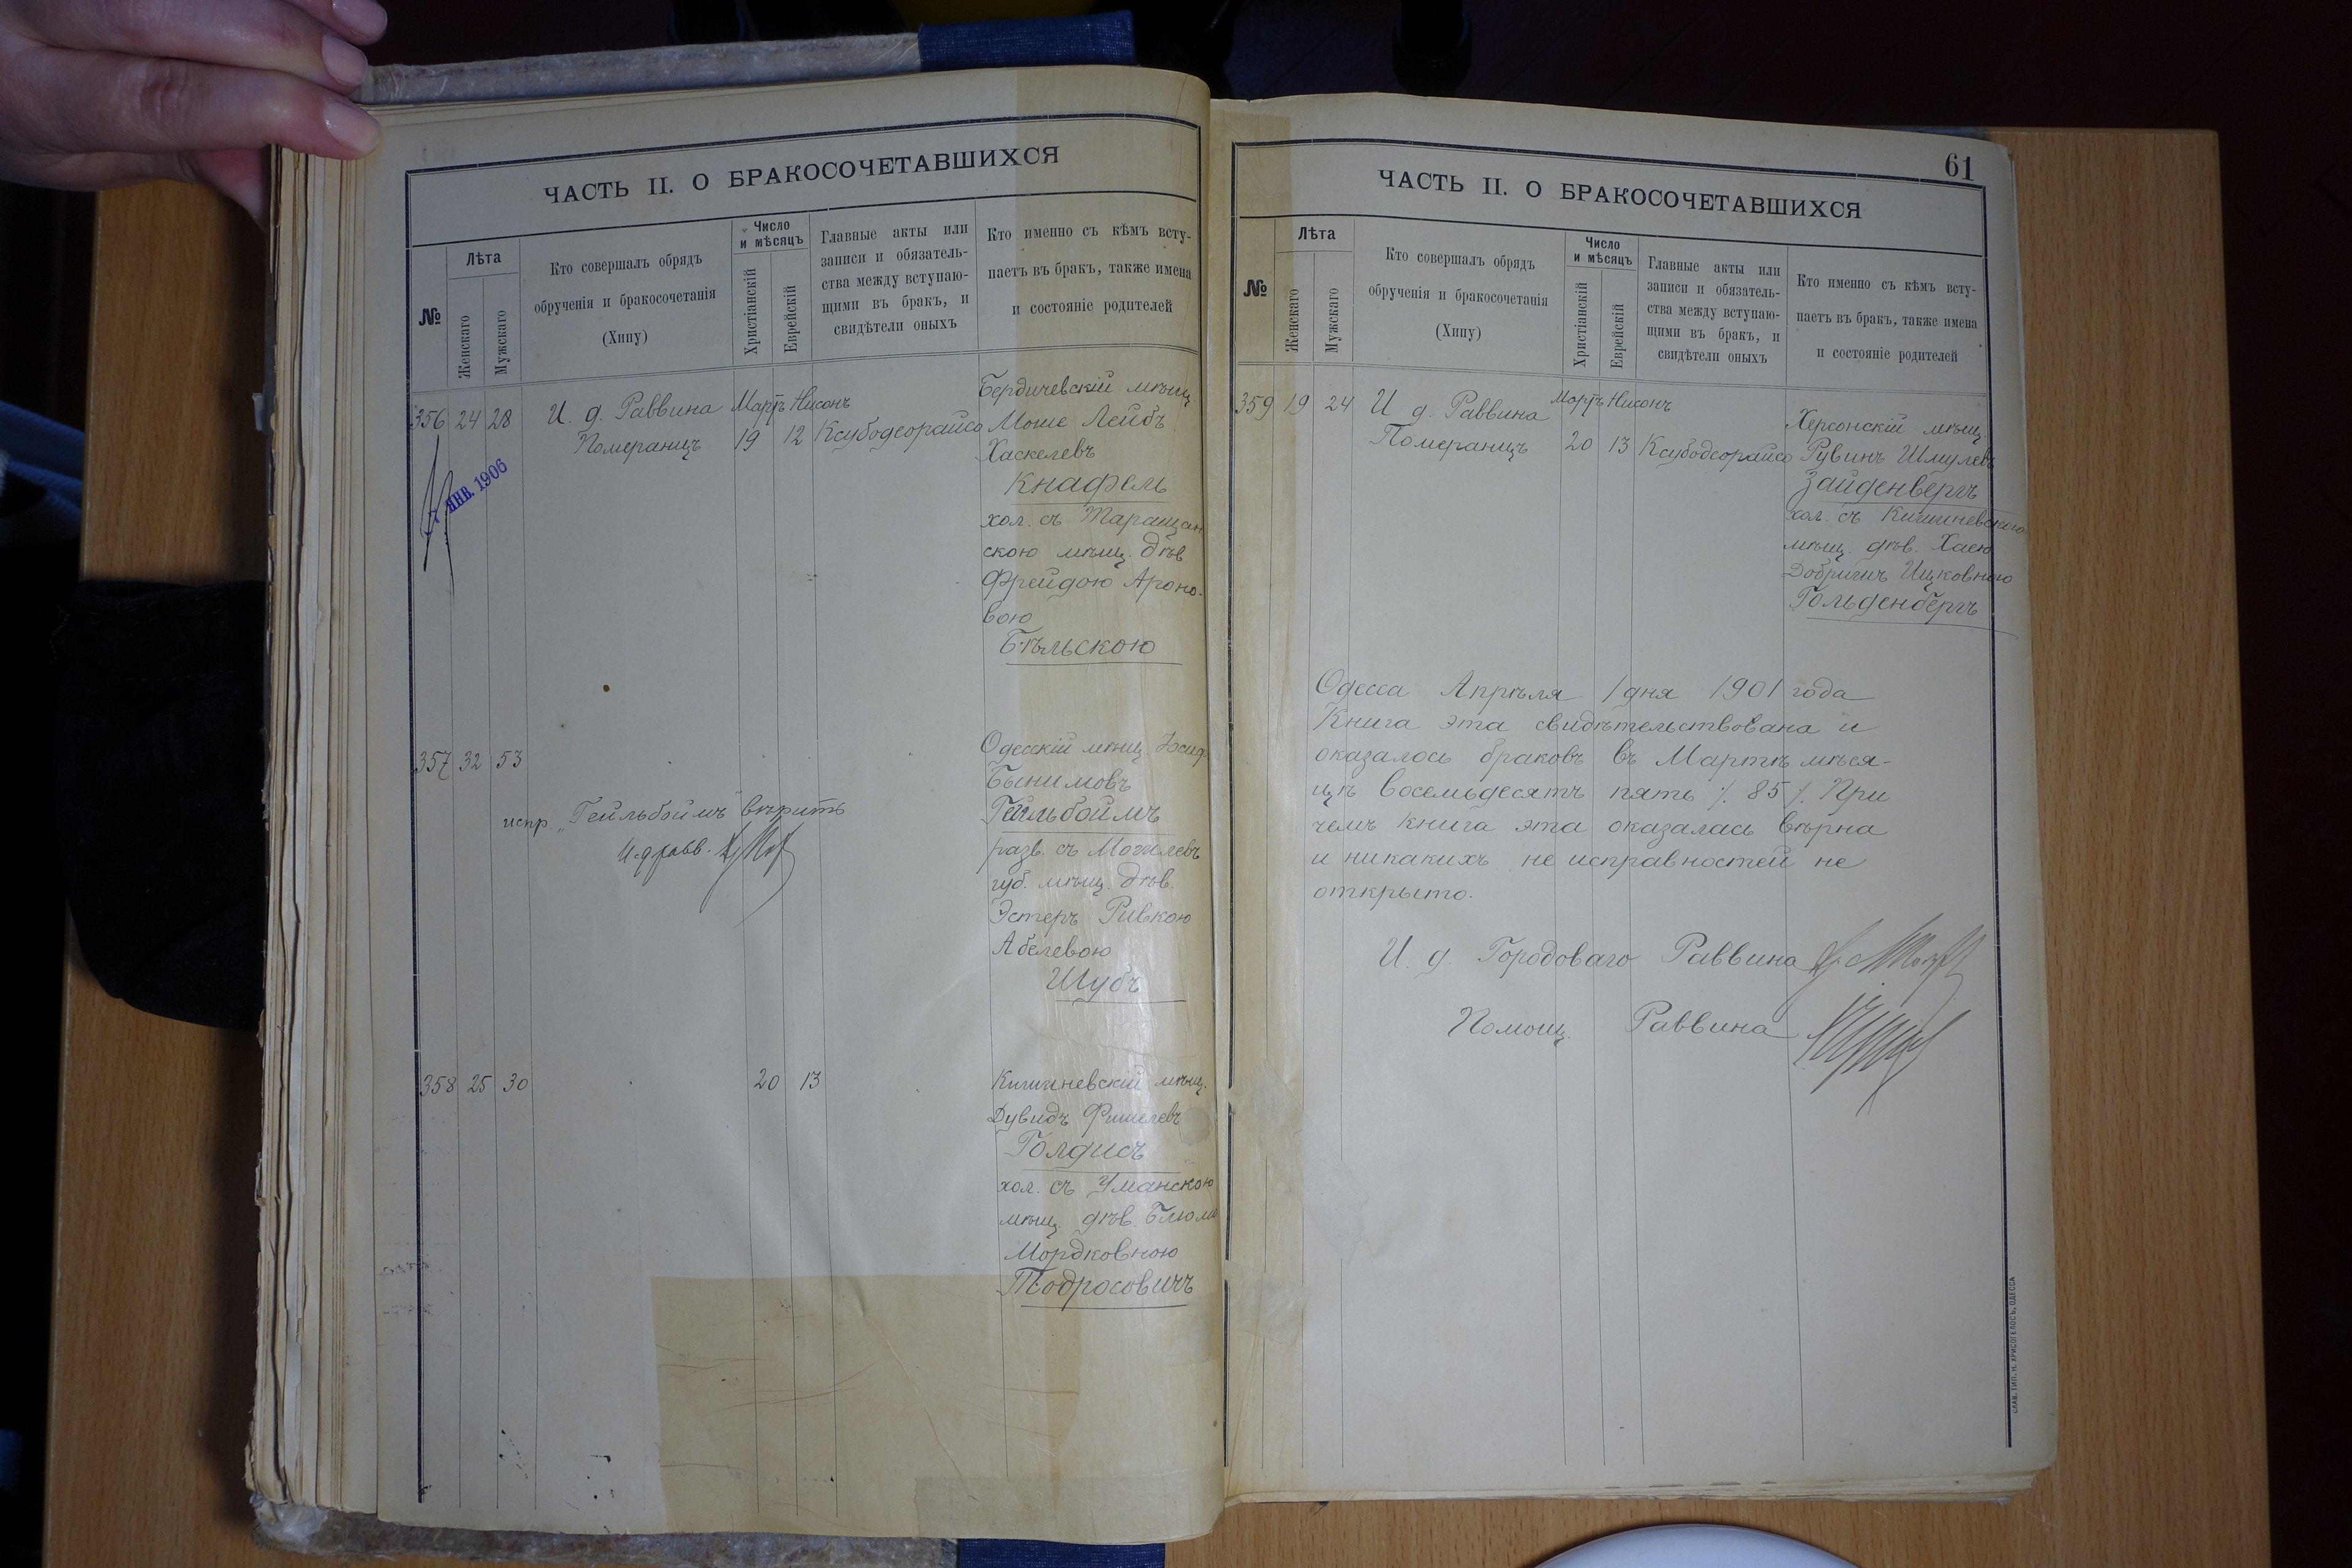 ЧАСТЬ II. О БРАКОСОЧЕТАВШИХСЯ
№
Лѣта
Женскаго
Мужскаго
Кто совершалъ обрядъ
обрученія и бракосочетанія
(Хипу)
Число
и мѣсяцъ
Христіанскій
Еврейскій
Главные акты или
записи и обязатель-
ства между вступаю-
щими въ бракъ, и
свидѣтели оныхъ
Кто именно съ кѣмъ всту-
паетъ въ бракъ, также имена
и состояніе родителей
356 24 28
И. д. Раввина
Померанцъ
Мартъ Нисонъ
19 12
Ксубодеорайсо
7 ЯНВ. 1906
Бердичевскій мѣщ.
Моше Лейбъ
Хаскелевъ
Кнафель
хол. съ Таращан
скою мѣщ. дѣв
Фрейдою Ароно-
вою
Бѣльскою
357 32 53
испр. „Гейльбоймъ" вѣрить
И. д. равв.
Одесскій мѣщ.
Бынимовъ
Гейльбоймъ
разв. съ Могилевъ
губ. мѣщ. дѣв.
Эстеръ Ривкою
Абелевою
Шубъ
358 25 30
20 13
Кишиневскій мѣщ.
Дувидъ Фишелевъ
Голдисъ
хол. съ Уманскою
мѣщ. дѣв. Блюма
Мордковною
Тодросовичъ
61
ЧАСТЬ II. О БРАКОСОЧЕТАВШИХСЯ
№
Лѣта
Женскаго
Мужскаго
Кто совершалъ обрядъ
обрученія и бракосочетанія
(Хипу)
Число
и мѣсяцъ
Христіанскій
Еврейскій
Главные акты или
записи и обязатель-
ства между вступаю-
щими въ бракъ, и
свидѣтели оныхъ
Кто именно съ кѣмъ всту-
паетъ въ бракъ, также имена
и состояніе родителей
359 19 24
И д. Раввина
Померанцъ
Мартъ Нисонъ
20 13
Ксубодеорайсо
Херсонскій мѣщ.
Рувинъ Шмулевъ
Зайденвергъ
хол. съ Кишиневскою
мѣщ. дѣв. Хаею
Добришъ Ицковною
Гольденбергъ
Одесса Апрѣля 1 дня 1901 года
Книга эта свидѣтельствована и
оказалось браковъ въ Мартѣ мѣся-
цѣ восемьдесятъ пять /. 85 /. При
чемъ книга эта оказалась вѣрна
и никакихъ не исправностей не
открыто.
И. д. Городоваго Раввина
Помощ. Раввина
СЛАВ. ТИП. Н. ХРИСОГЕЛОСЪ, ОДЕССА